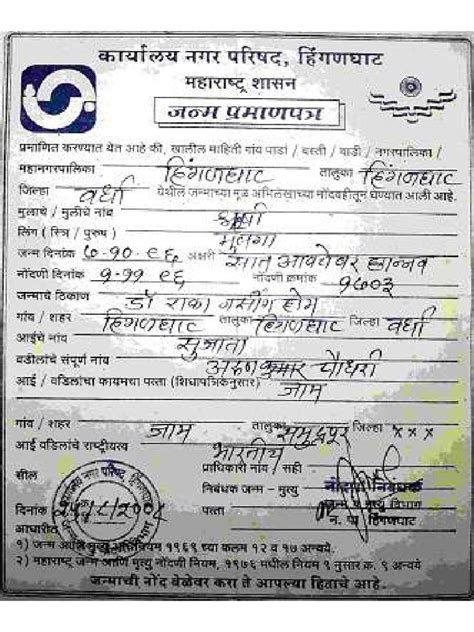 कार्यालय नगर परिषद, हिंगणघाट
महाराष्ट्र शासन
जन्म प्रमाणपत्र
प्रमाणित करण्यात येत आहे की, खालील माहिती गांव पाडा / वस्ती / वाडी / नगरपालिका /
महानगरपालिका हिंगणघाट तालुका हिंगणघाट
जिल्हा वर्धा येथील जन्माच्या मूळ अभिलेखाच्या नोंदवहीतून घेण्यात आली आहे.
मुलाचे / मुलीचे नांव
लिंग (स्त्रि / पुरुष) मुलगा
जन्म दिनांक ७-१०-९६ अक्षरी सात
नोंदणी दिनांक ९-११-९६ नोंदणी क्रमांक १७०३
जन्माचे ठिकाण डॉ राका नर्सींग होम
गांव / शहर हिंगणघाट तालुका हिंगणघाट जिल्हा वर्धा
आईचे नांव सुजाता
वडीलांचे संपूर्ण नांव अरुणकुमार चौधरी
आई / वडिलांचा कायमचा पत्ता (शिधापत्रिकेनुसार) जाम
गांव / शहर जाम तालुका समुद्रपूर जिल्हा x x x
आई वडिलांचे राष्ट्रीयत्व भारतीय
सील प्राधिकारी नांव / सही
निबंधक जन्म - मृत्यु नोंदणी निबंधक
जन्म व मृत्यु विभाग
दिनांक पत्ता न. प. हिंगणघाट
आधारीत
१) जन्म आणि मृत्यु अधिनियम १९६९ च्या कलम १२ व १७ अन्वये.
२) महाराष्ट्र जन्म आणि मृत्यु नोंदणी नियम, १९७६ मधील नियम ९ नुसार क्र. ९ अन्वये
जन्माची नोंद वेळेवर करा ते आपल्या हिताचे आहे.